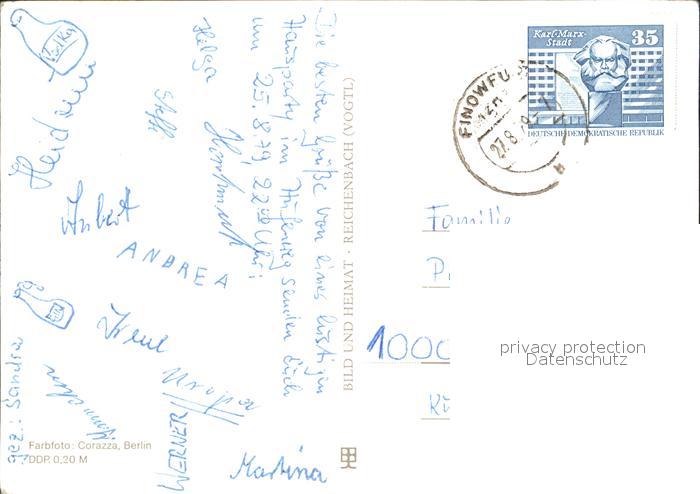 Die besten Grüße von einer lustigen
Hausparty im Hufenweg senden Euch
um 25.8.79, 22 00 Uhr:
Helga
Steffi
Hartmut
Heidemarie
Hubert
ANDREA
Irene
WERNER
Martina
gez.: Sandra
Farbfoto: Corazza, Berlin
DDR 0,20 M
BILD UND HEIMAT · REICHENBACH (VOGTL)
Karl-Marx-
Stadt
35
DEUTSCHE DEMOKRATISCHE REPUBLIK
FINOWFU
27.8.
Familie
1000
privacy protection
Datenschutz